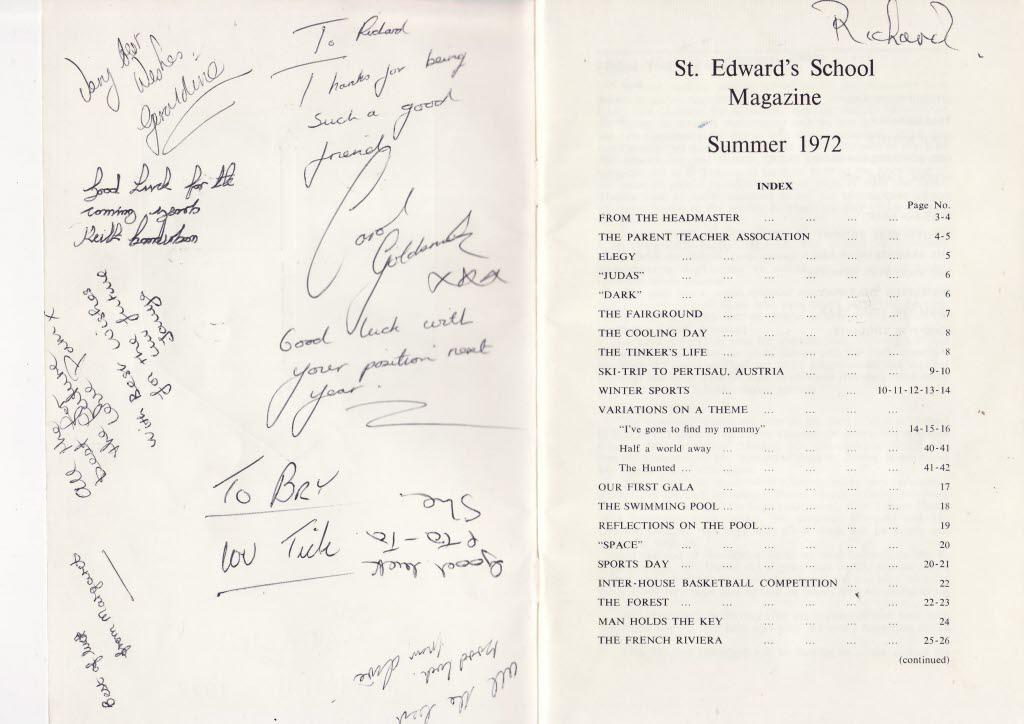 Very Best
Wishes
Geraldine
To Richard
Thanks for being
such a good
friend
Carol
Goldsmith
xxx
Good luck with
your position next
year.
Good Luck for the
coming years
Keith
With Best Wishes
for the future
luv
All the
Best for
the future
love Dawn x
To BRY
luv Tich
Good luck
She.
Best of luck
from Margaret
All the best
Good luck.
from
Richard
St. Edward's School
Magazine
Summer 1972
INDEX
Page No.
FROM THE HEADMASTER ... ... ... ... 3-4
THE PARENT TEACHER ASSOCIATION ... ... 4-5
ELEGY ... ... ... ... ... ... 5
"JUDAS" ... ... ... ... ... ... 6
"DARK" ... ... ... ... ... ... 6
THE FAIRGROUND ... ... ... ... ... 7
THE COOLING DAY ... ... ... ... ... 8
THE TINKER'S LIFE ... ... ... ... ... 8
SKI-TRIP TO PERTISAU, AUSTRIA ... ... ... 9-10
WINTER SPORTS ... ... ... ... 10-11-12-13-14
VARIATIONS ON A THEME ... ... ...
"I've gone to find my mummy" ... ... ... 14-15-16
Half a world away ... ... ... ... ... 40-41
The Hunted ... ... ... ... ... ... 41-42
OUR FIRST GALA ... ... ... ... ... 17
THE SWIMMING POOL ... ... ... ... ... 18
REFLECTIONS ON THE POOL ... ... ... ... 19
"SPACE" ... ... ... ... ... ... 20
SPORTS DAY ... ... ... ... ... 20-21
INTER-HOUSE BASKETBALL COMPETITION ... ... 22
THE FOREST ... ... ... ... ... ... 22-23
MAN HOLDS THE KEY ... ... ... ... 24
THE FRENCH RIVIERA ... ... ... ... 25-26
(continued)